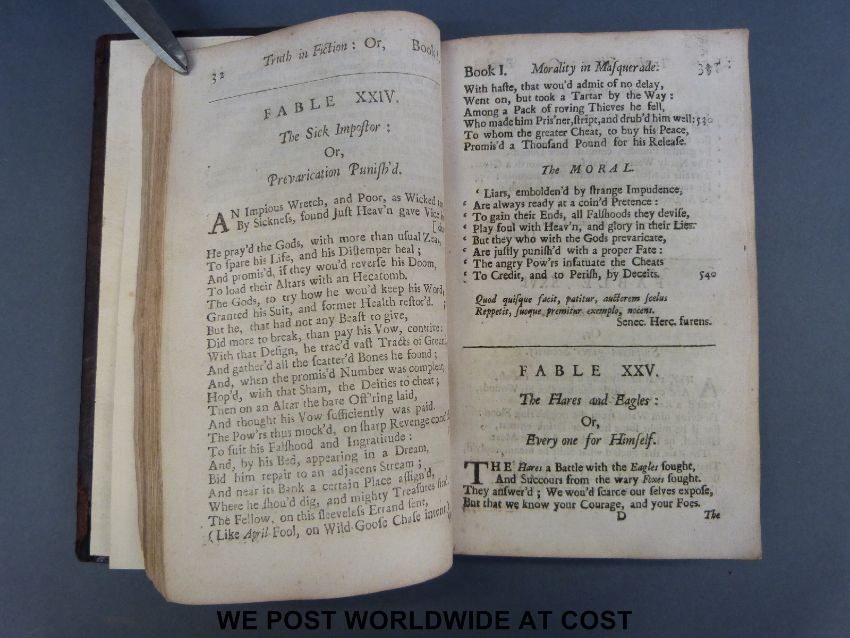 32 Truth in Fiction: Or, Book
FABLE XXIV.
The Sick Impostor:
Or,
Prevarication Punish'd.
AN Impious Wretch, and Poor, as Wicked
By Sickness, found Just Heav'n gave Vice
He pray'd the Gods, with more than usual Zeal,
To spare his Life, and his Distemper heal;
And promis'd, if they wou'd reverse his Doom,
To load their Altars with an Hecatomb.
The Gods, to try how he wou'd keep his Word,
Granted his Suit, and former Health restor'd.
But he, that had not any Beast to give,
Did more to break, than pay his Vow, contrive:
With that Design, he trac'd vast Tracts of Ground
And gather'd all the scatter'd Bones he found;
And, when the promis'd Number was compleat,
Hop'd, with that Sham, the Deities to cheat;
Then on an Altar the bare Off'ring laid,
And thought his Vow sufficiently was paid.
The Pow'rs thus mock'd, on sharp Revenge
To suit his Falshood and Ingratitude:
And, by his Bed, appearing in a Dream,
Bid him repair to an adjacent Stream;
And near its Bank a certain Place assign'd,
Where he shou'd dig, and mighty Treasures find.
The Fellow, on this sleeveless Errand sent,
(Like April-Fool, on Wild-Goose Chase intent)
Book I. Morality in Masquerade:
With haste, that wou'd admit of no delay,
Went on, but took a Tartar by the Way:
Among a Pack of roving Thieves he fell,
Who made him Pris'ner, stript, and drub'd him well: 530
To whom the greater Cheat, to buy his Peace,
Promis'd a Thousand Pound for his Release.
The MORAL.
‘ Liars, embolden'd by strange Impudence,
‘ Are always ready at a coin'd Pretence:
‘ To gain their Ends, all Falshoods they devise,
‘ Play foul with Heav'n, and glory in their Lies.
‘ But they who with the Gods prevaricate,
‘ Are justly punish'd with a proper Fate:
‘ The angry Pow'rs infatuate the Cheats
‘ To Credit, and to Perish, by Deceits. 540
Quod quisque facit, patitur, auctorem scelus
Reppetit, suoque premitur exemplo, nocens.
Senec. Herc. furens.
FABLE XXV.
The Hares and Eagles:
Or,
Every one for Himself.
THE Hares a Battle with the Eagles fought,
And Succours from the wary Foxes sought.
They answer'd; We wou'd scarce our selves expose,
But that we know your Courage, and your Foes.
D The
WE POST WORLDWIDE AT COST